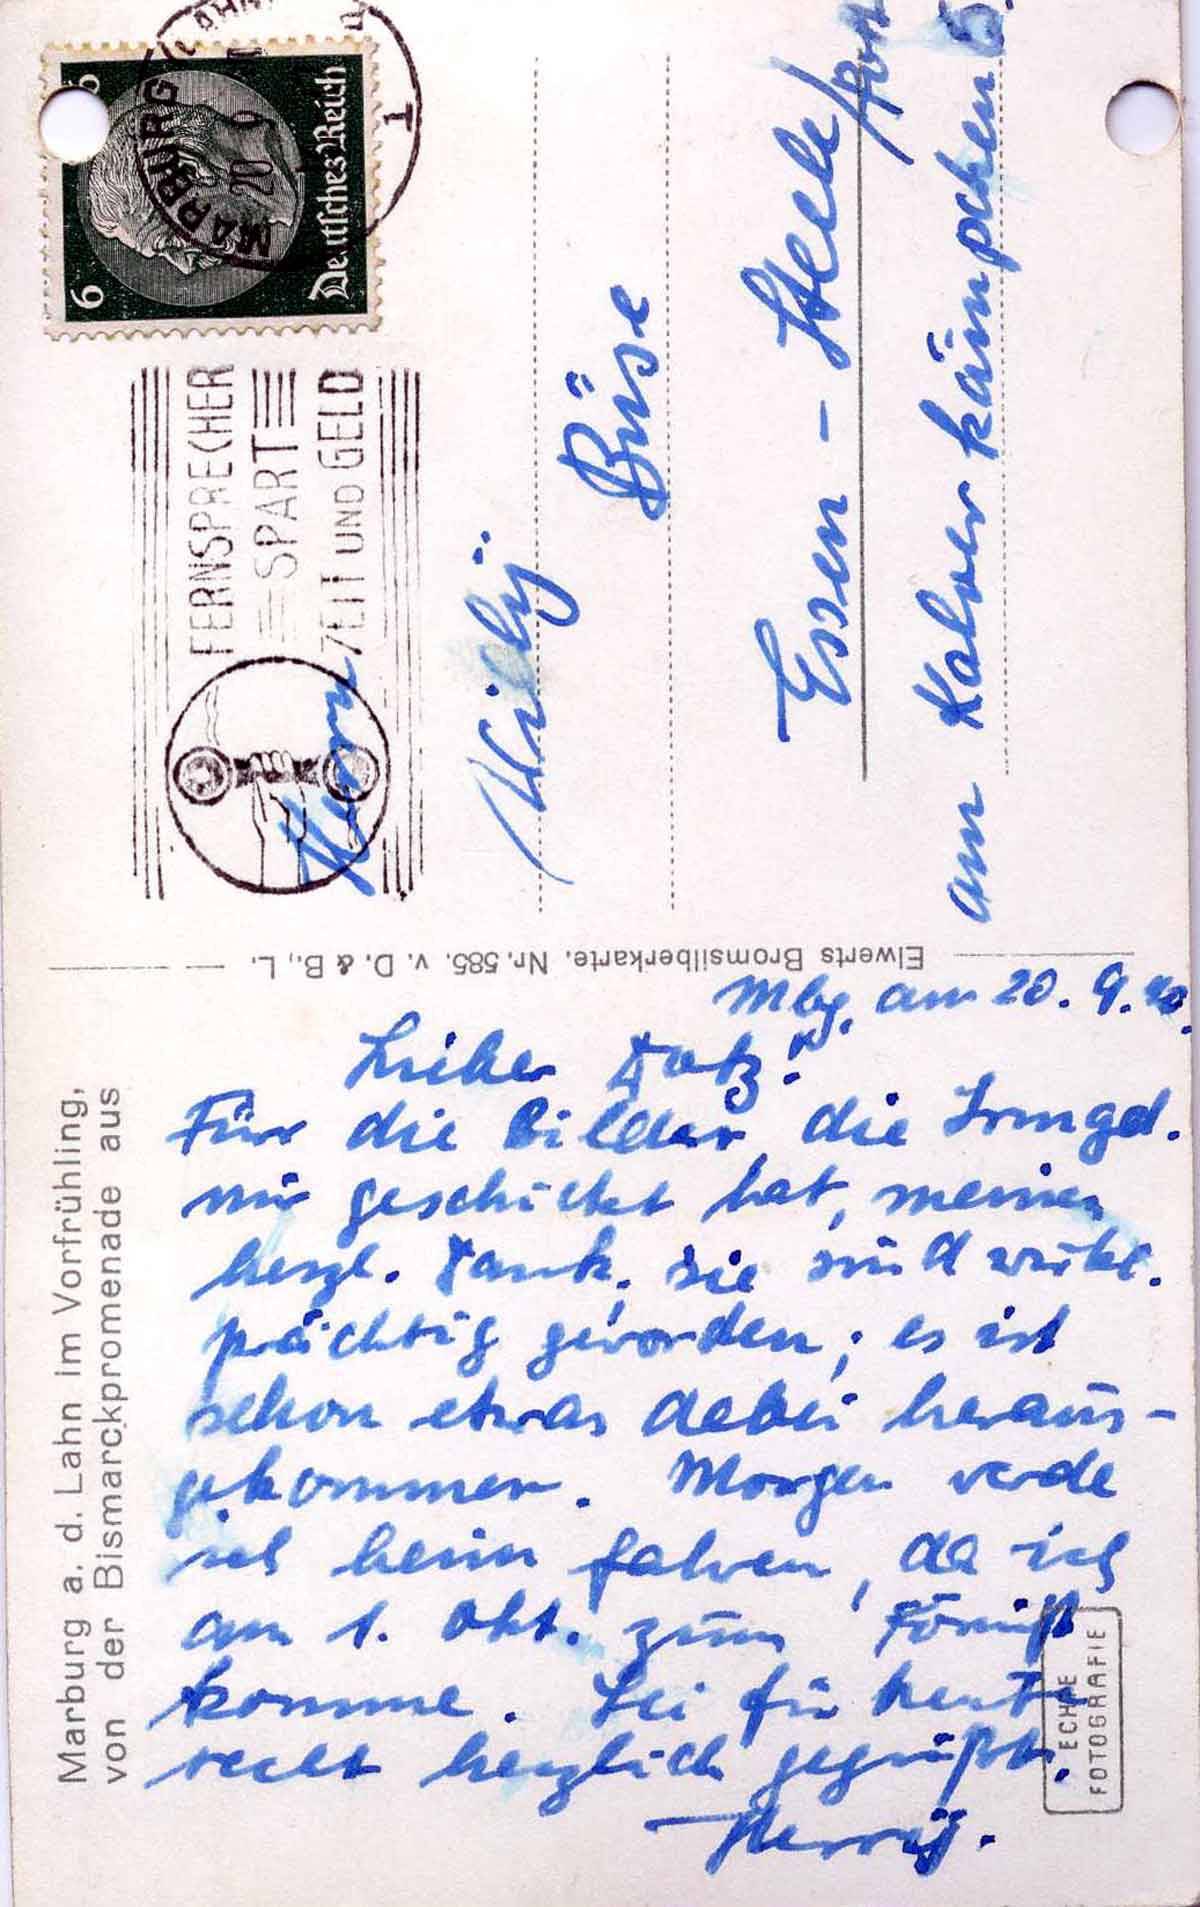 6
6
Deutsches Reich
MARBURG (LAHN)
20 9
1
FERNSPRECHER
SPART
ZEIT UND GELD
Herrn
Willy
Büse
Essen - Steele /
am Kalverkämpchen 6.
Elwerts Bromsilberkarte. Nr. 585. v. D. & B., L.
Marburg a. d. Lahn im Vorfrühling,
von der Bismarckpromenade aus
Mbg. am 20. 9. 40.
Lieber
Für die Bilder, die Irmgd.
mir geschickt hat, meinen
herzl. Dank. Sie sind wirkl.
prächtig geworden; es ist
schon etwas dabei heraus-
gekommen. Morgen werde
ich heim fahren, da ich
am 1. Okt. zum
komme. Sei für heute
recht herzlich gegrüßt.
ECHTE
FOTOGRAFIE